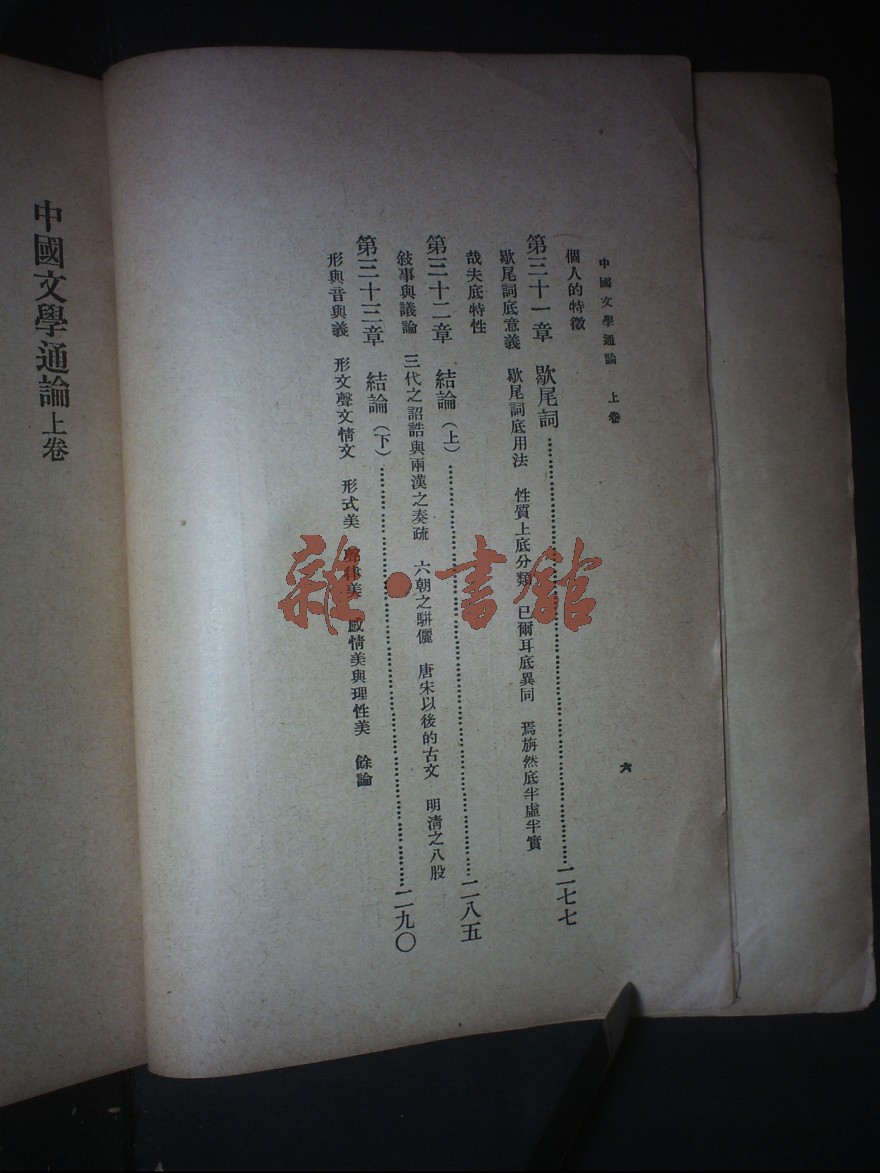 中國文學通論 上卷
個人的特徵
第三十一章 歇尾詞……二七七
歇尾詞底意義 歇尾詞底用法 性質上底分類 巳爾耳底異同 焉旃然底半虛半實
哉夫底特性
第三十二章 結論(上)……二八五
敍事與議論 三代之詔誥與兩漢之奏疏 六朝之駢儷 唐宋以後的古文 明清之八股
第三十三章 結論(下)……二九〇
形與音與義 形文聲文情文 形式美 美 感情美與理性美 餘論
六
中國文學通論上卷
雜·書館